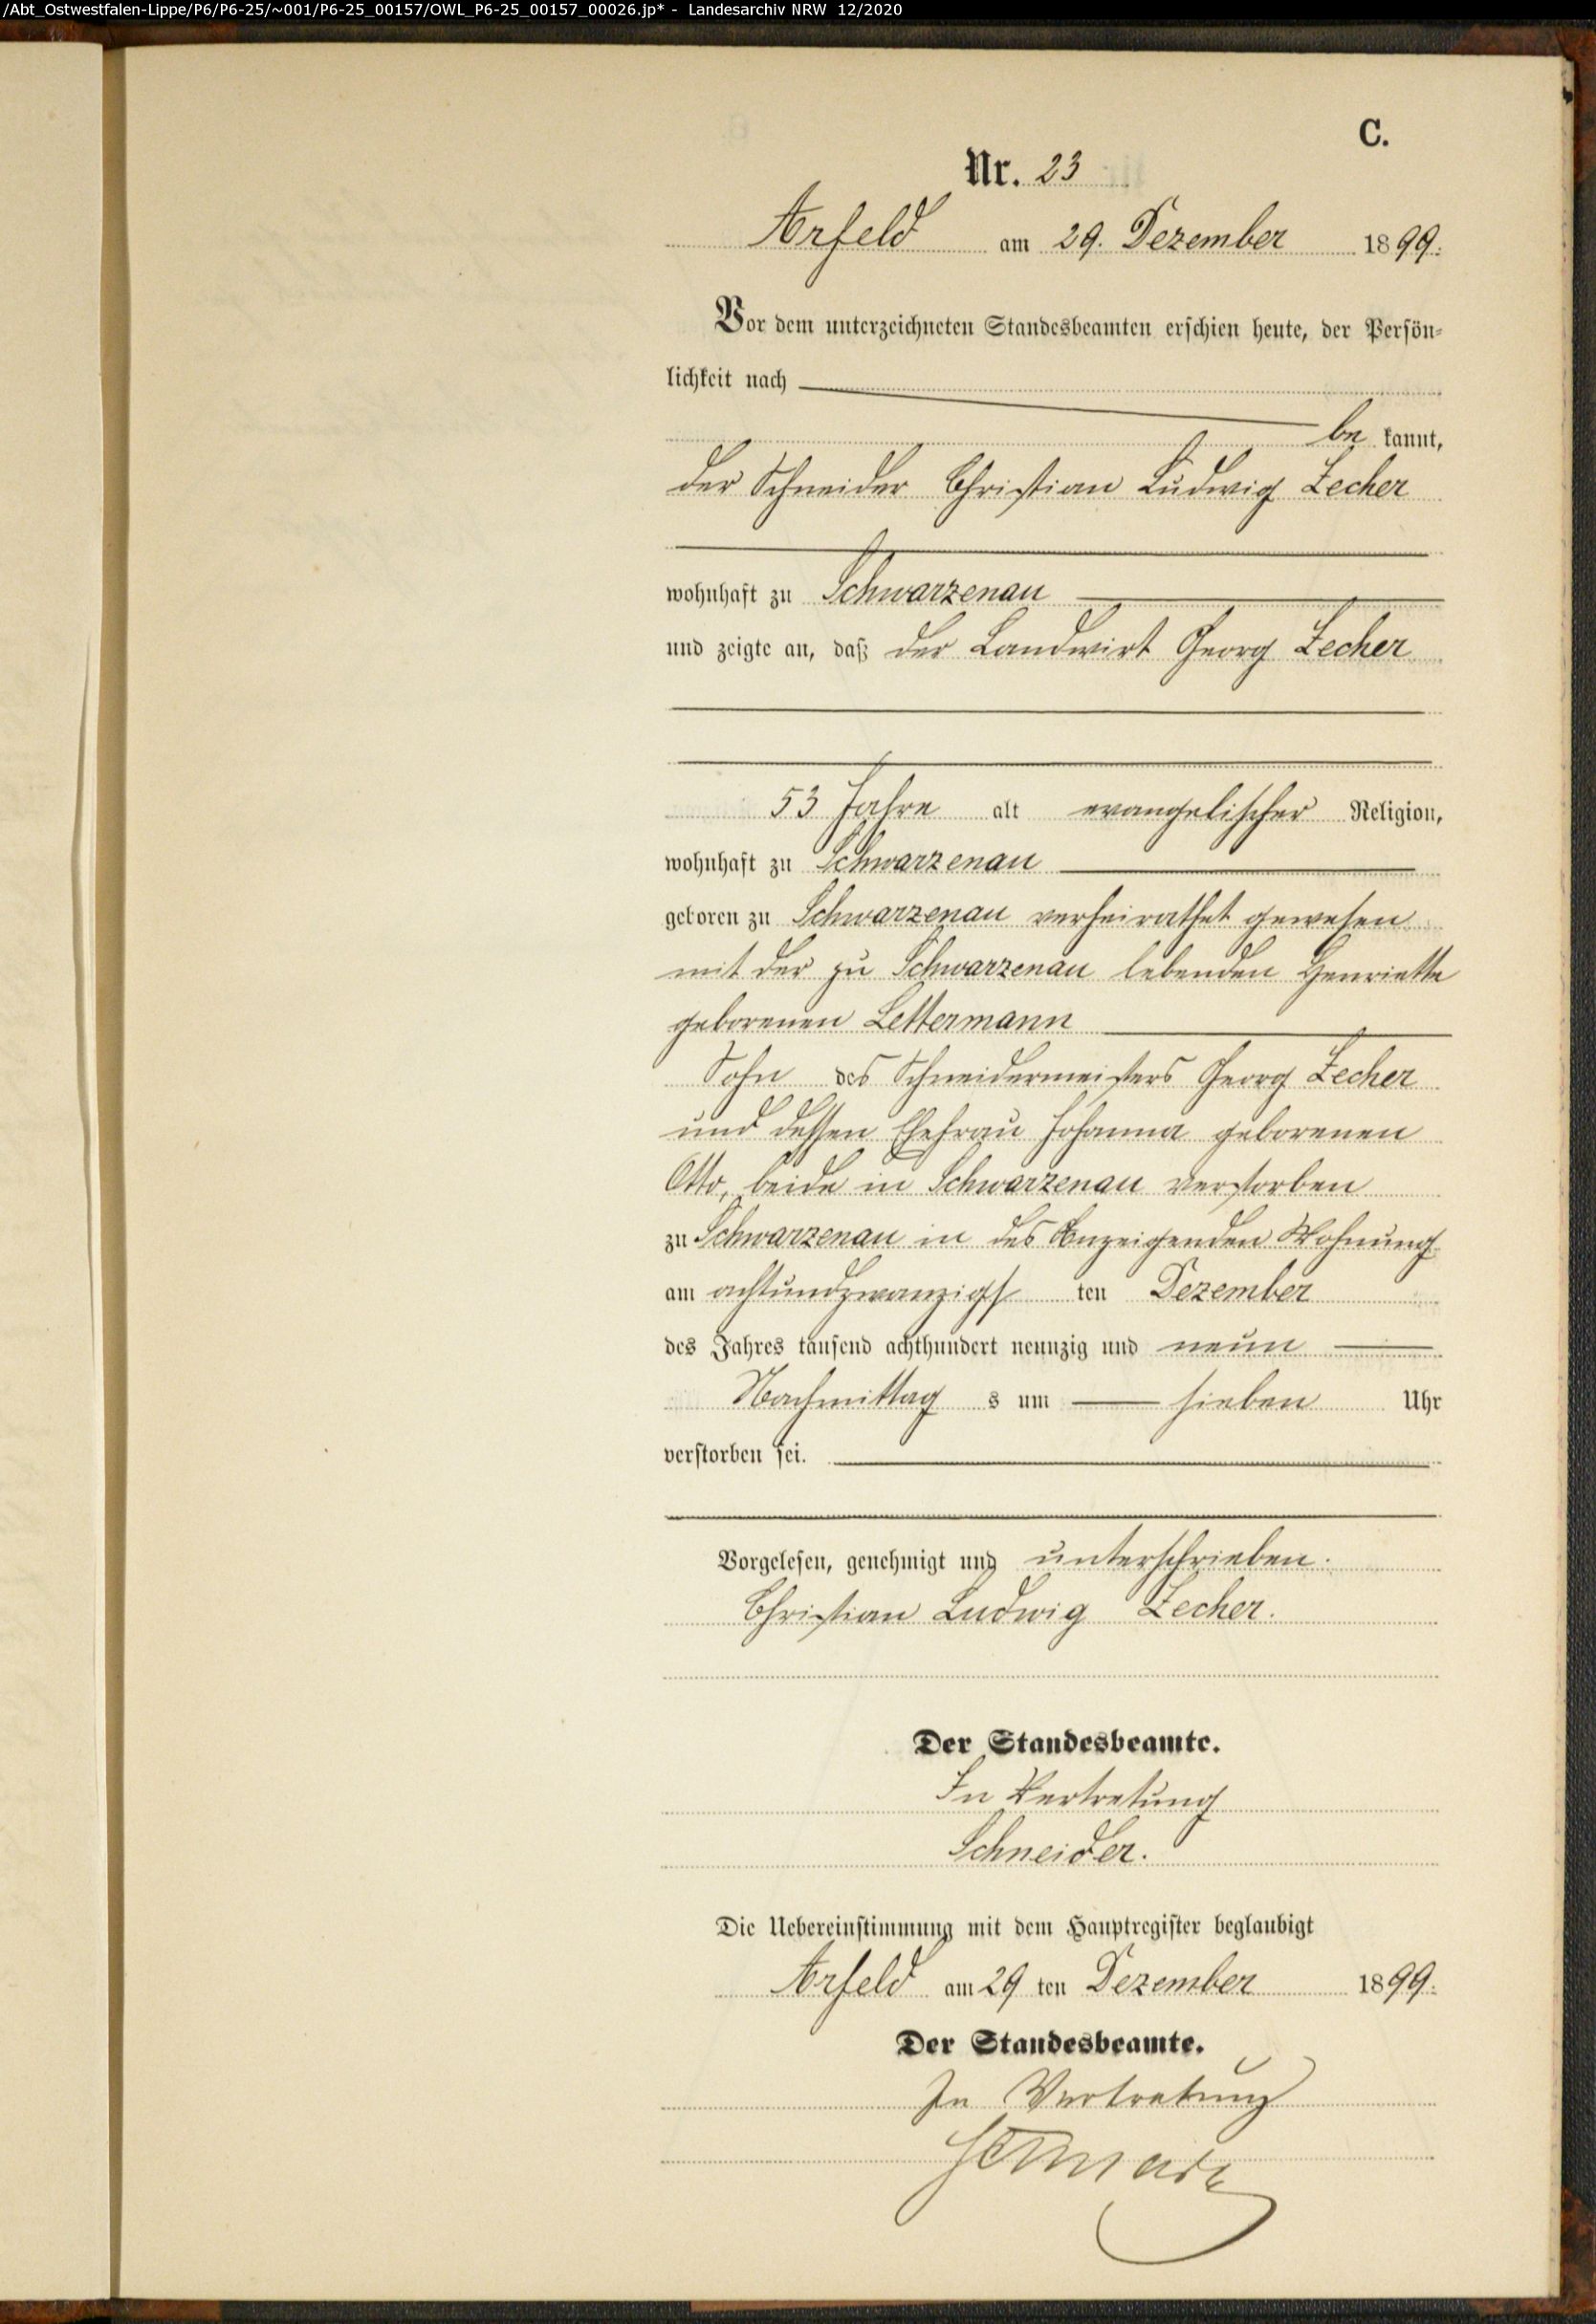 /Abt_Ostwestfalen-Lippe/P6/P6-25/~001/P6-25_00157/OWL_P6-25_00157_00026.jp* - Landesarchiv NRW 12/2020
C.
Nr. 23
Arfeld am 29. Dezember 1899.
Vor dem unterzeichneten Standesbeamten erschien heute, der Persön-
lichkeit nach
be kannt,
der Schneider Christian Ludwig Zecher
wohnhaft zu Schwarzenau
und zeigte an, daß der Landwirt Georg Zecher
53 Jahre alt evangelischer Religion,
wohnhaft zu Schwarzenau
geboren zu Schwarzenau verheirathet gewesen
mit der zu Schwarzenau lebenden Henriette
geborenen Lettermann
Sohn des Schneidermeisters Georg Zecher
und dessen Ehefrau Johanna geborenen
Otto, beide in Schwarzenau verstorben
zu Schwarzenau in des Anzeigenden Wohnung
am achtundzwanzigs ten Dezember
des Jahres tausend achthundert neunzig und neun
Nachmittag s um sieben Uhr
verstorben sei.
Vorgelesen, genehmigt und unterschrieben.
Christian Ludwig Zecher.
Der Standesbeamte.
In Vertretung
Schneider.
Die Uebereinstimmung mit dem Hauptregister beglaubigt
Arfeld am 29 ten Dezember 1899.
Der Standesbeamte.
In Vertretung